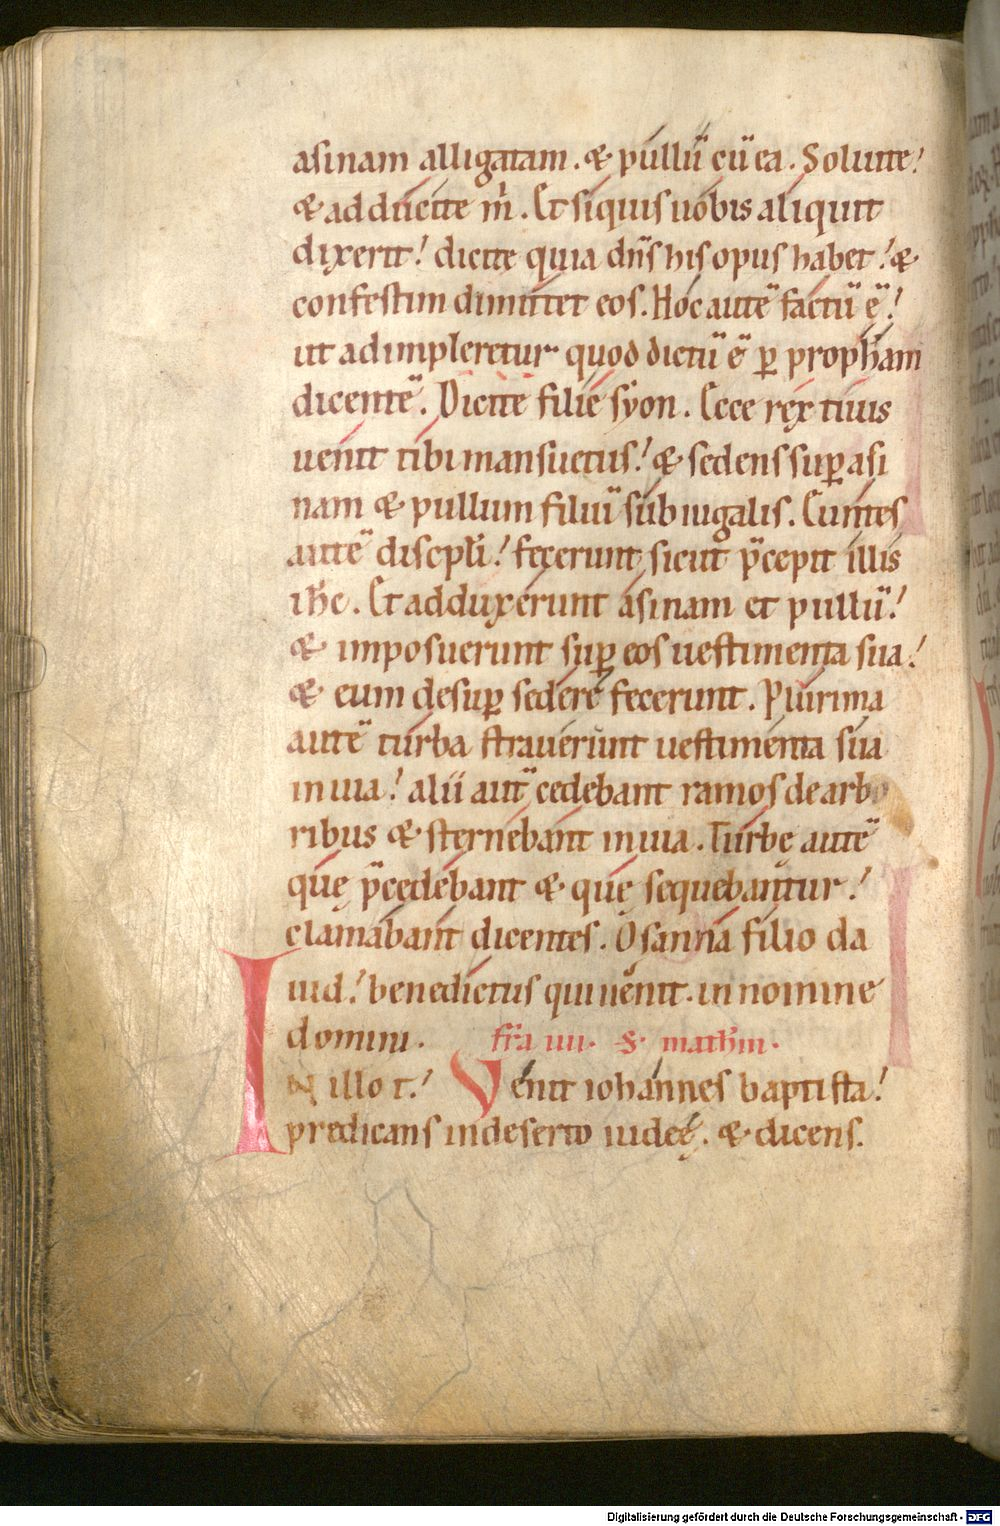 asinam alligatam. & pullū cū ea. Soluite!
& adducite m̄. Et siquis uobis aliquit
dixerit! dicite quia dn̄s his opus habet! &
confestim dimittet eos. Hoc autē factū ē!
ut adimpleretur quod dictū ē ꝑ proph̄am
dicentē. Dicite filie syon. Ecce rex tiuis
uenit tibi mansuetus! & sedens suꝑ asi
nam & pullum filiū subiugalis. Euntes
autē discipl̄i! fecerunt sicut p̄cepit illis
ih̄c. Et adduxerunt asinam et pullū!
& imposuerunt suꝑ eos uestimenta sua!
& eum desuꝑ sedere fecerunt. Plurima
autē turba strauerunt uestimenta sua
in uia! alii aut̄ cedebant ramos de arbo
ribus & sternebant in uia. Turbę autē
quę p̄cedebant & quę sequebantur!
clamabant dicentes. Osanna filio da
uid! benedictus qui uenit. in nomine
domini. fr̄a iiii. s. math̄m.
IN illo t̄! Venit iohannes baptista!
predicans in deserto iudeę. & dicens.
Digitalisierung gefördert durch die Deutsche Forschungsgemeinschaft - DFG